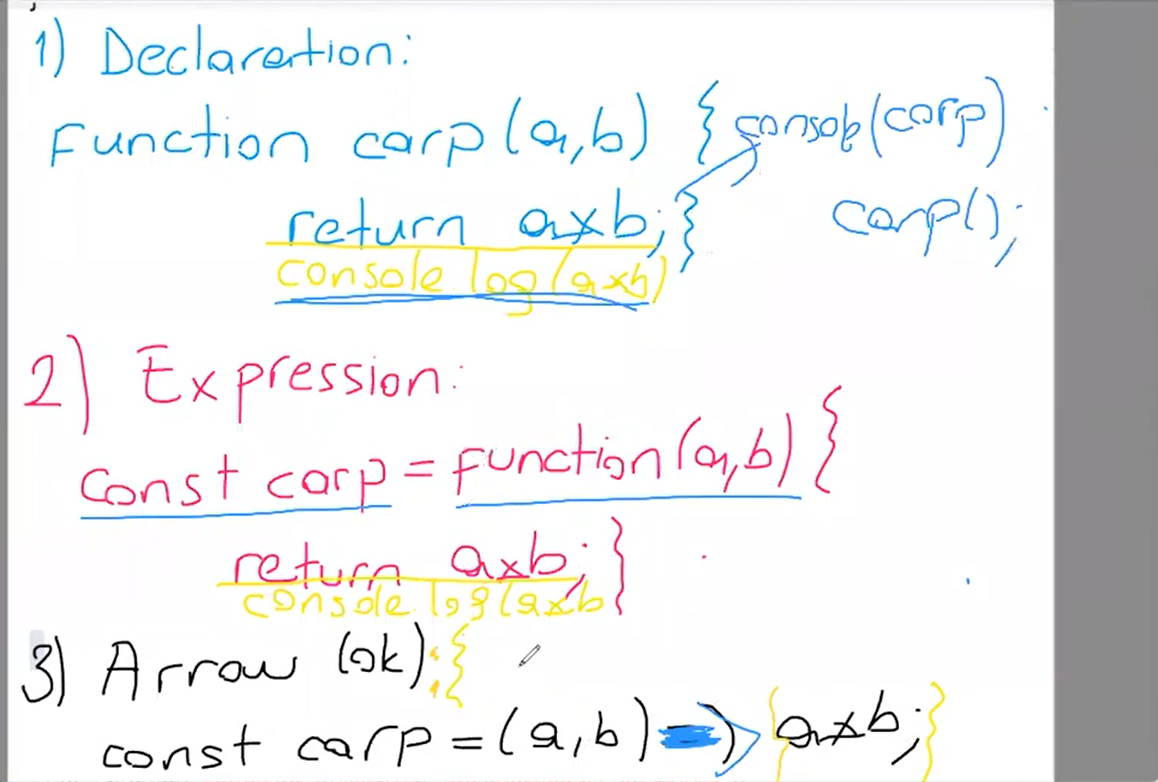 1) Declaration:
Function carp (a,b) { consol(carp)
return axb;} carp();
console.log(axb)
2) Expression:
const carp = function(a,b) {
return axb;}
console.log(axb
3) Arrow (ok):{
const carp = (a,b) => {axb;}